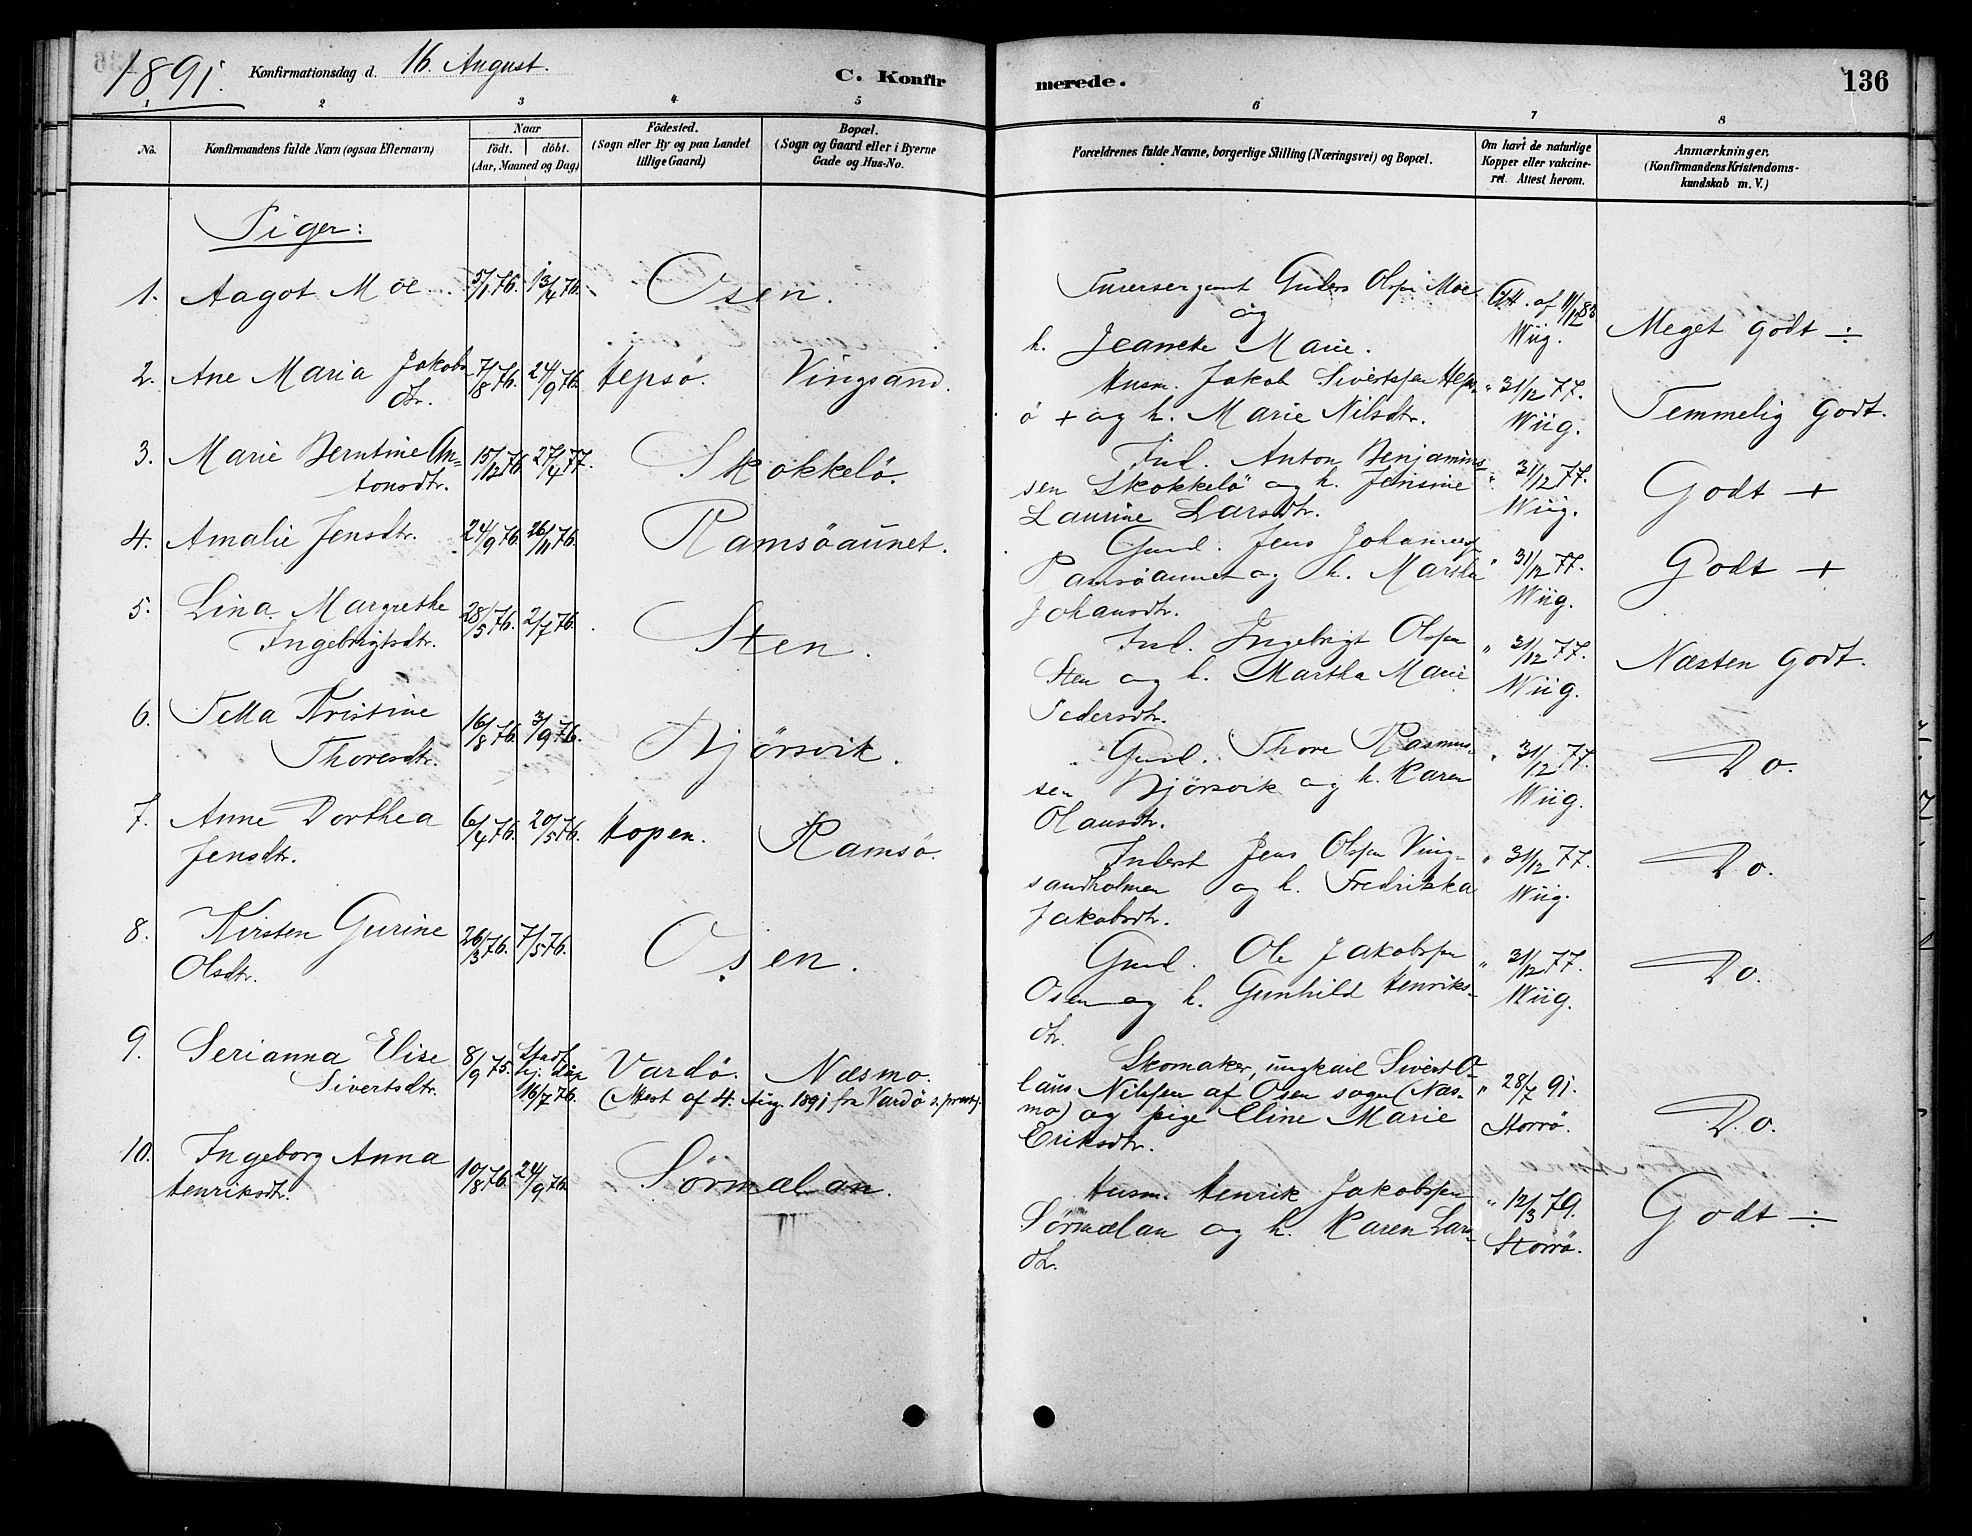 1891.
Konfirmationsdag d. 16. August.
C. Konfirmerede.
136
1 2 3 4 5 6 7 8
No.
Konfirmandens fulde Navn (ogsaa Efternavn)
Naar
födt. döbt.
(Aar, Maaned og Dag)
Födested.
(Sogn eller By og paa Landet
tillige Gaard)
Bopæl.
(Sogn og Gaard eller i Byerne
Gade og Hus-No.
Forældrenes fulde Navne, borgerlige Stilling (Næringsvei) og Bopæl.
Om havt de naturlige
Kopper eller vakcine-
ret. Attest herom.
Anmærkninger.
(Konfirmandens Kristendoms-
kundskab m. V.)
Piger:
1. Aagot Moe 5/1 76. 13/4 76. Osen.
Olsen Moe
og
h. Jeancke Marie.
Att. af 11/12 83
Wiig.
Meget godt ÷
2. Ane Maria Jakobs-
dtr.
7/8 76. 24/9 76. Hepsø. Vingsand.
Husm. Jakob Sivertssen Heps-
ø + og h. Marie Nilsdtr.
" 31/12 77.
Wiig.
Temmelig godt.
3. Marie Berntine An-
tonsdtr.
15/12 76. 27/4 77. Skokkelö.
Ind. Anton Benjamins-
sen Skokkelö og h. Jensine
Laurine Larsdtr.
" 31/12 77.
Wiig.
Godt +
4. Amalie Jensdtr. 24/9 76. 26/11 76. Ramsøaunet.
Gmd. Jens Johanness.
Ramsøaunet og h. Martha
Johansdtr.
" 31/12 77.
Wiig.
Godt +
5. Lina Margrethe
Ingebrigtsdtr.
28/5 76. 2/7 76. Sten.
Ind. Ingebrigt Olssen
Sten og h. Martha Marie
Pedersdtr.
" 31/12 77.
Wiig.
Næsten godt.
6. Petta Kristine
Thoresdtr.
16/8 76. 3/9 76. Bjørsvik.
Gmd. Thore Rasmus-
sen Bjørsvik og h. Karen
Olausdtr.
" 31/12 77.
Wiig.
Do.
7. Anne Dorthea
Jensdtr.
6/4 76. 20/5 76. Hopen. Ramsø.
Inderst Jens Olssen Ving-
sandholmen og h. Fredrikka
Jakobsdtr.
" 31/12 77.
Wiig.
Do.
8. Kirsten Gurine
Olsdtr.
26/3 76. 7/5 76. Osen.
Gmd. Ole Jakobssen
Osen og h. Gunhild Henriks-
dtr.
" 31/12 77.
Wiig.
Do.
9. Serianna Elise
Sivertsdtr.
8/9 75. Stadf.
hj. dåp
16/7 76.
Vardö. Næsmo.
(Attest af 4. Aug. 1891 fra Vardö s. præstg.
Skomaker, ungkarl Sivert O-
laus Nilssen af Osen sogn (Næs-
mo) og pige Eline Marie
Eriksdtr.
" 28/7 91.
Storrö.
Do.
10. Ingeborg Anna
Henriksdtr.
10/8 76. 24/9 76. Sörmælan.
Husm. Henrik Jakobssen
Sörmælan og h. Karen Lars-
dtr.
" 12/3 79.
Storrö.
Godt ÷